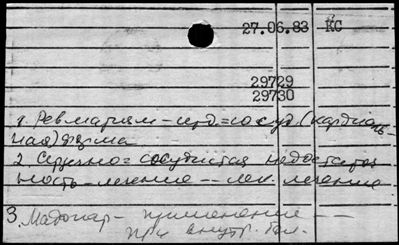 27.06.83 КС
29729
29730
1. Ревматизм - серд=сосуд. (кардиаль-
ная) форма
2 Сердечно= сосудистая недостаточ
ность - лечение -- лек. лечение
3. - применение --
при внутр. бол.